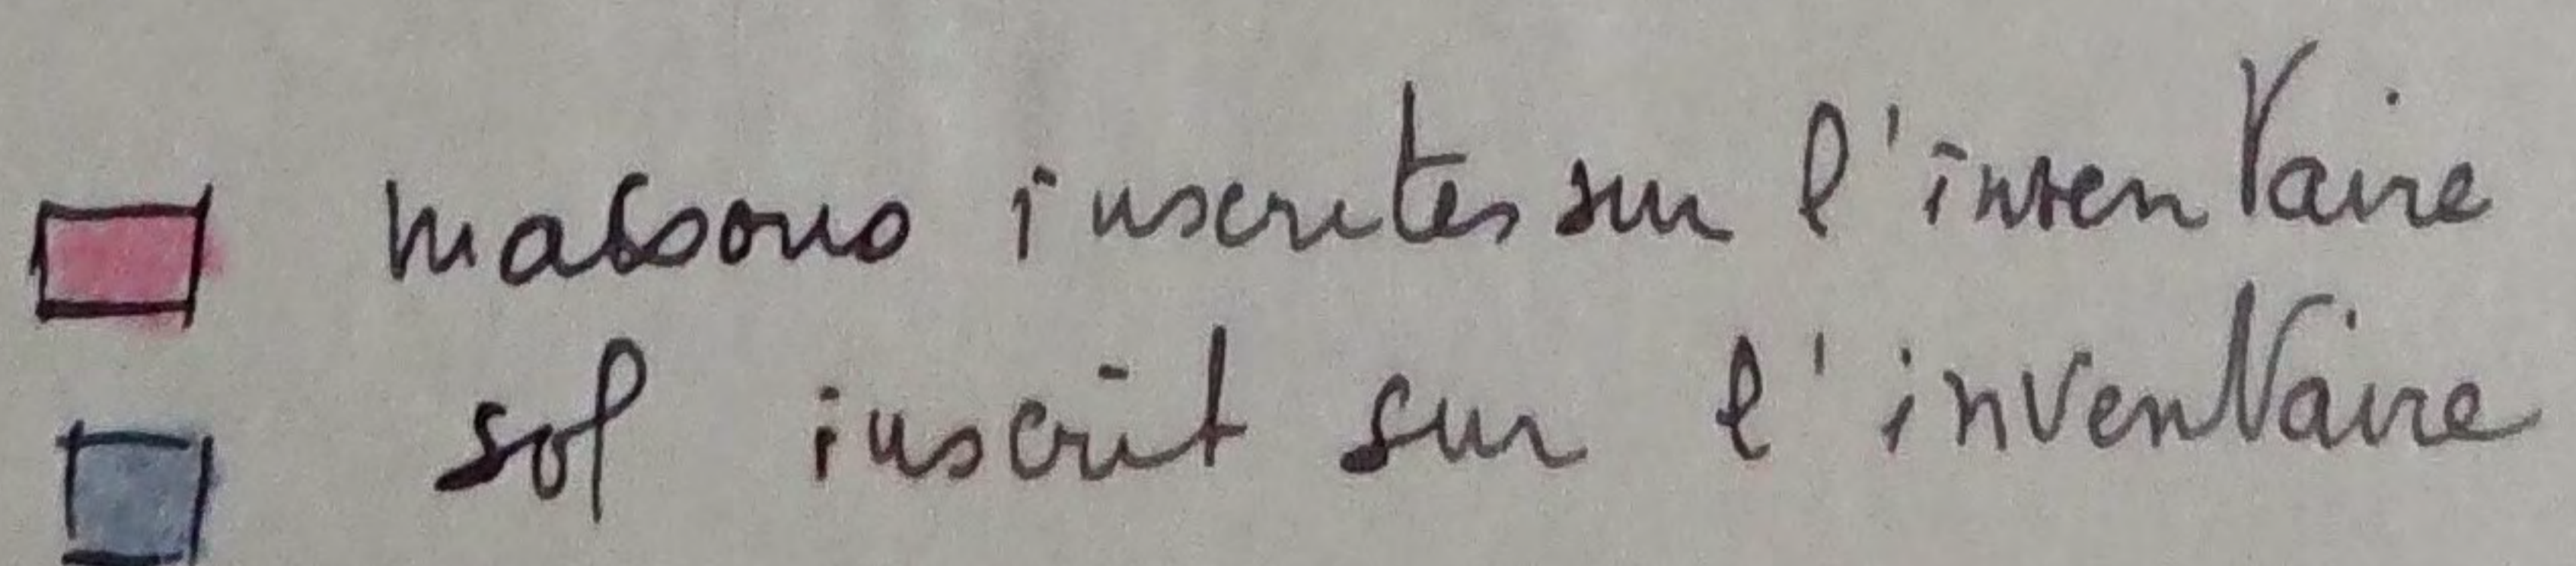 maisons inscrites sur l'inventaire
sol inscrit sur l'inventaire